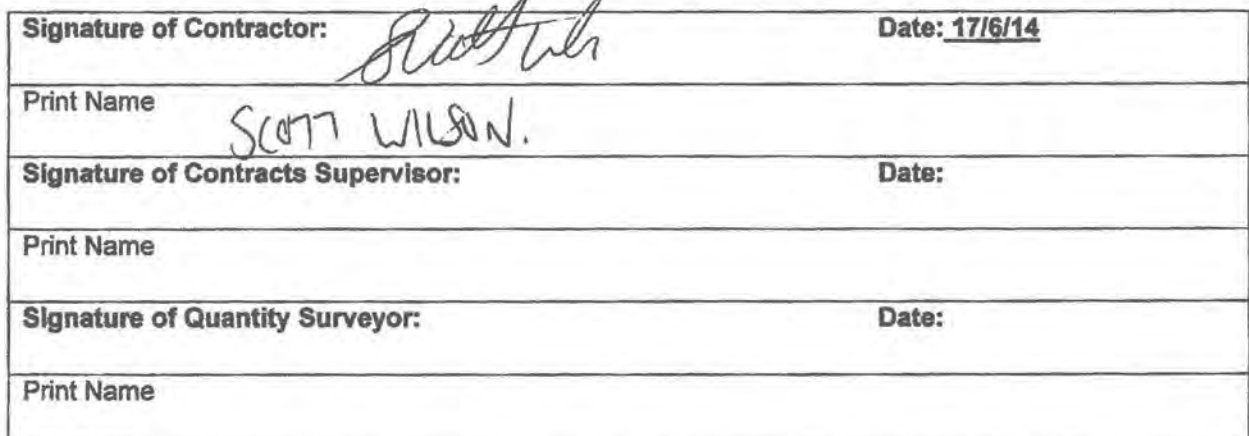 Signature of Contractor: Date: 17/6/14
Print Name
SCOTT WILSON.
Signature of Contracts Supervisor: Date:
Print Name
Signature of Quantity Surveyor: Date:
Print Name